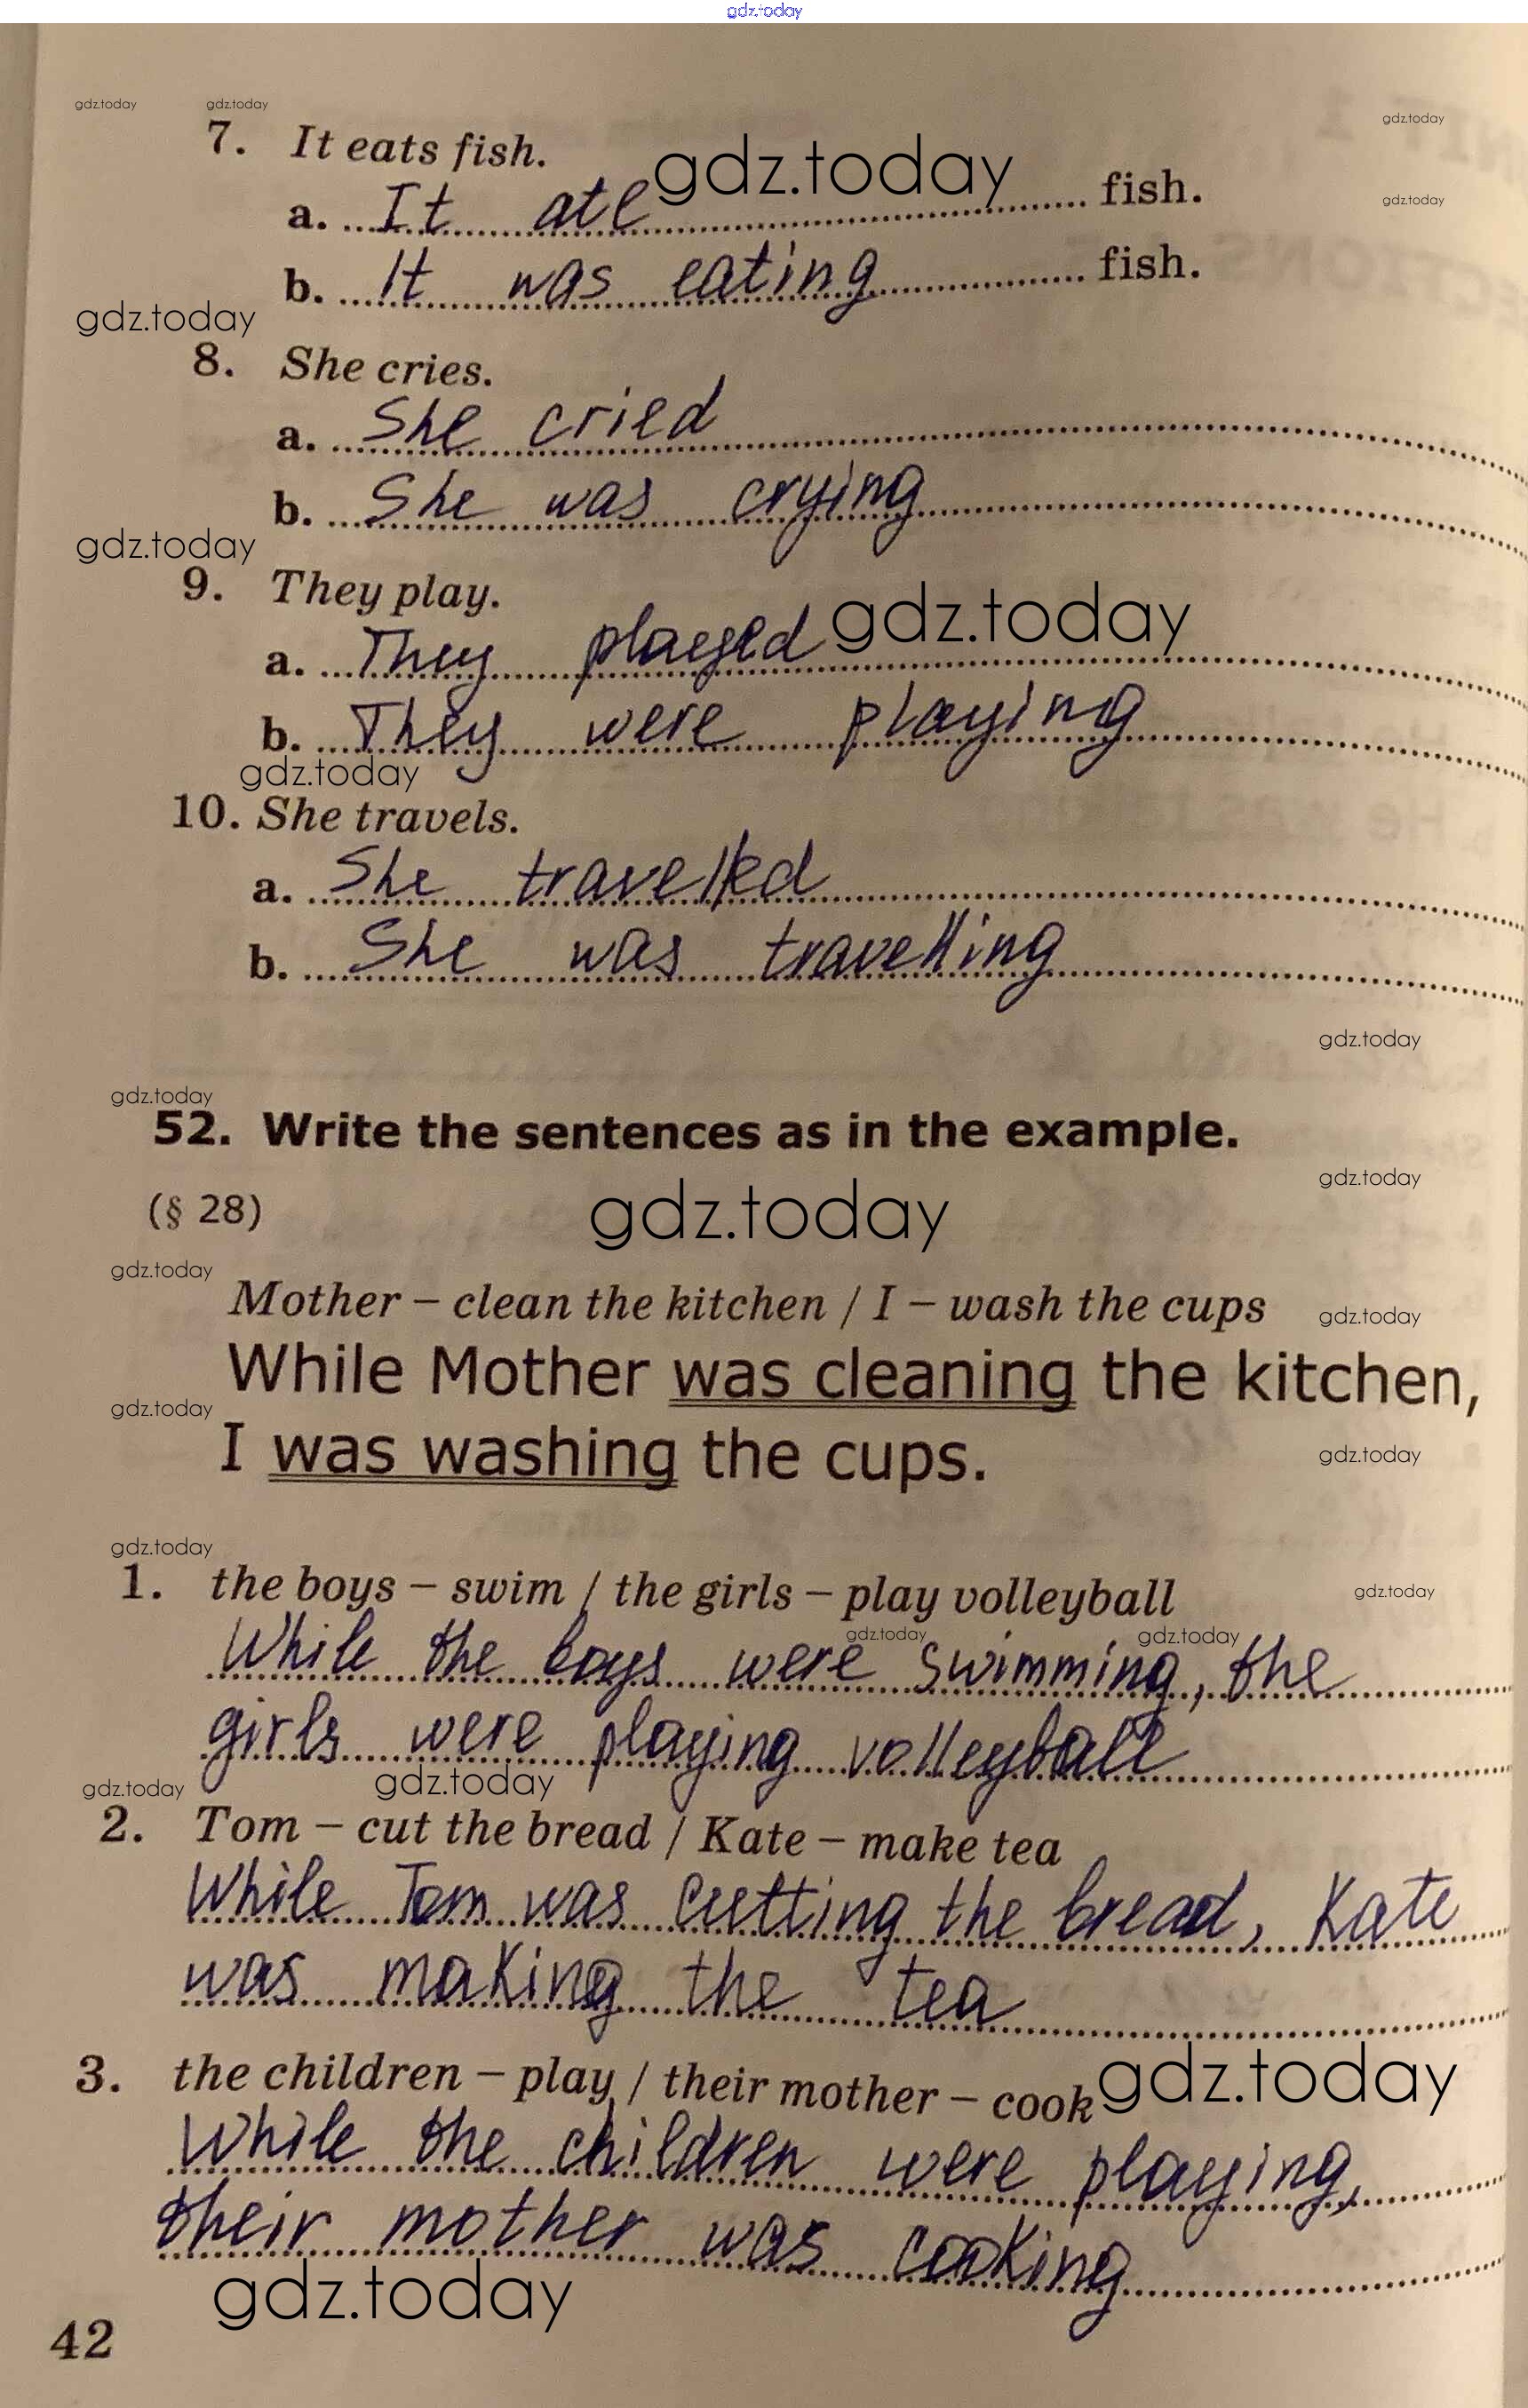 gdz.today
gdz.today gdz.today gdz.today
7. It eats fish.
gdz.today
a. It ate fish.
gdz.today
b. It was eating fish.
gdz.today
8. She cries.
a. She cried
b. She was crying
gdz.today
9. They play.
gdz.today
a. They played
b. They were playing
gdz.today
10. She travels.
a. She travelled
b. She was travelling
gdz.today
gdz.today
52. Write the sentences as in the example.
gdz.today
(§ 28)
gdz.today
gdz.today
Mother – clean the kitchen / I – wash the cups
gdz.today
While Mother was cleaning the kitchen,
gdz.today
I was washing the cups.
gdz.today
gdz.today
1. the boys – swim / the girls – play volleyball
gdz.today
gdz.today gdz.today
While the boys were swimming, the
girls were playing volleyball
gdz.today gdz.today
2. Tom – cut the bread / Kate – make tea
While Tom was cutting the bread, Kate
was making the tea
3. the children – play / their mother – cook
gdz.today
While the children were playing,
their mother was cooking
gdz.today
42